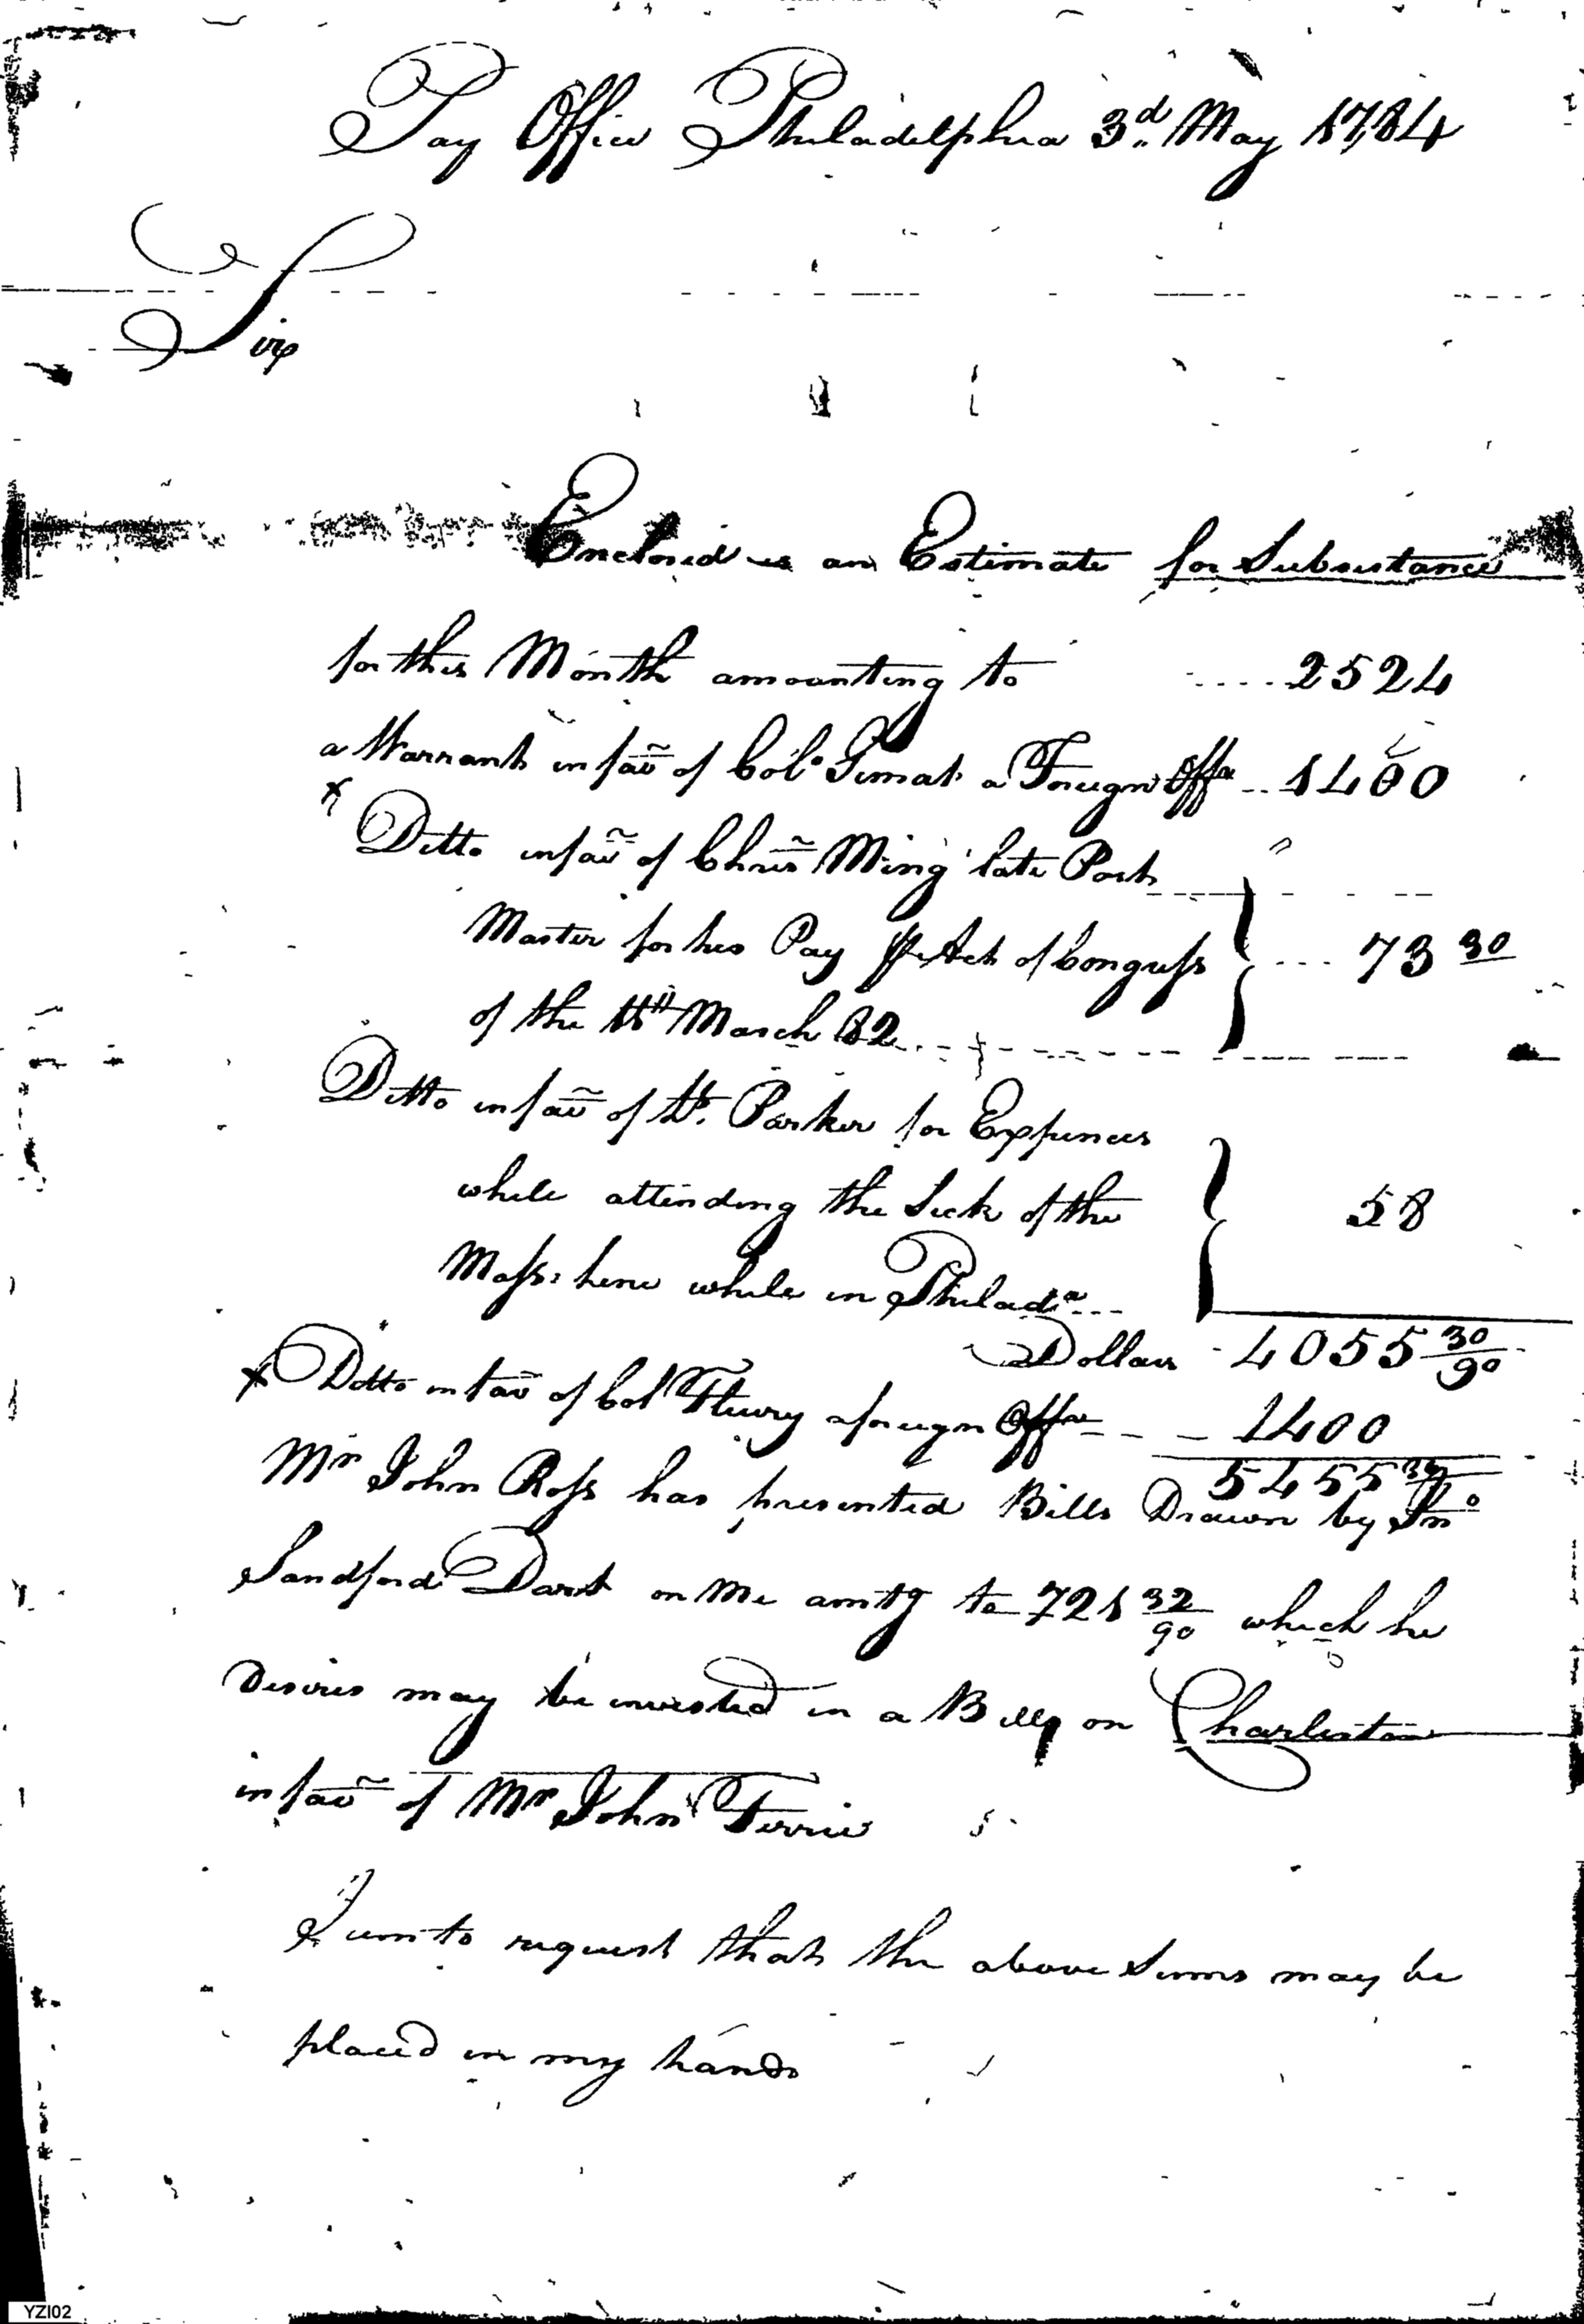 Pay Office Philadelphia 3d. May 1784
Sir
Enclosed is an Estimate for Subsistance
for this Month amounting to .... 2524
a Warrant in favr of Colo Gimat a Foreign Offr .. 1400
x Ditto in favr of Chrisr Ming late Post
Master for his Pay pr Act of Congress } ... 73 30
of the 11th March 82
Ditto in favr of Lt. Parker for Expences
while attending the Sick of the } 58
Mass: line while in Philada ...
Dollars 4055 30/90
x Ditto in favr of Col Fleury a foreign Offr - - - 1400
5455 30
Mr John Ross has presented Bills Drawn by Jno
Sandford Dart on Me amtg to 721 32/90 which he
Desires may be invested in a Bill on Charleston
in favr of Mr John Ferrie
I am to request that the above Sums may be
placed in my hands
YZI02